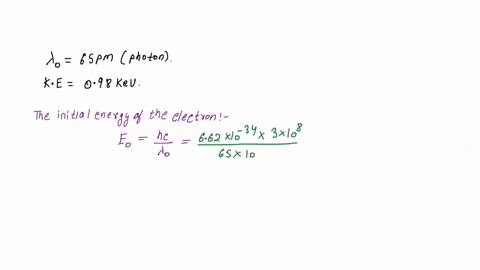 λ₀ = 65pm (photon).
K.E = 0.98 KeV.
The initial energy of the electron!-
E₀ = hc/λ₀ = 6.62 × 10⁻³⁴ × 3 × 10⁸ / 65 × 10